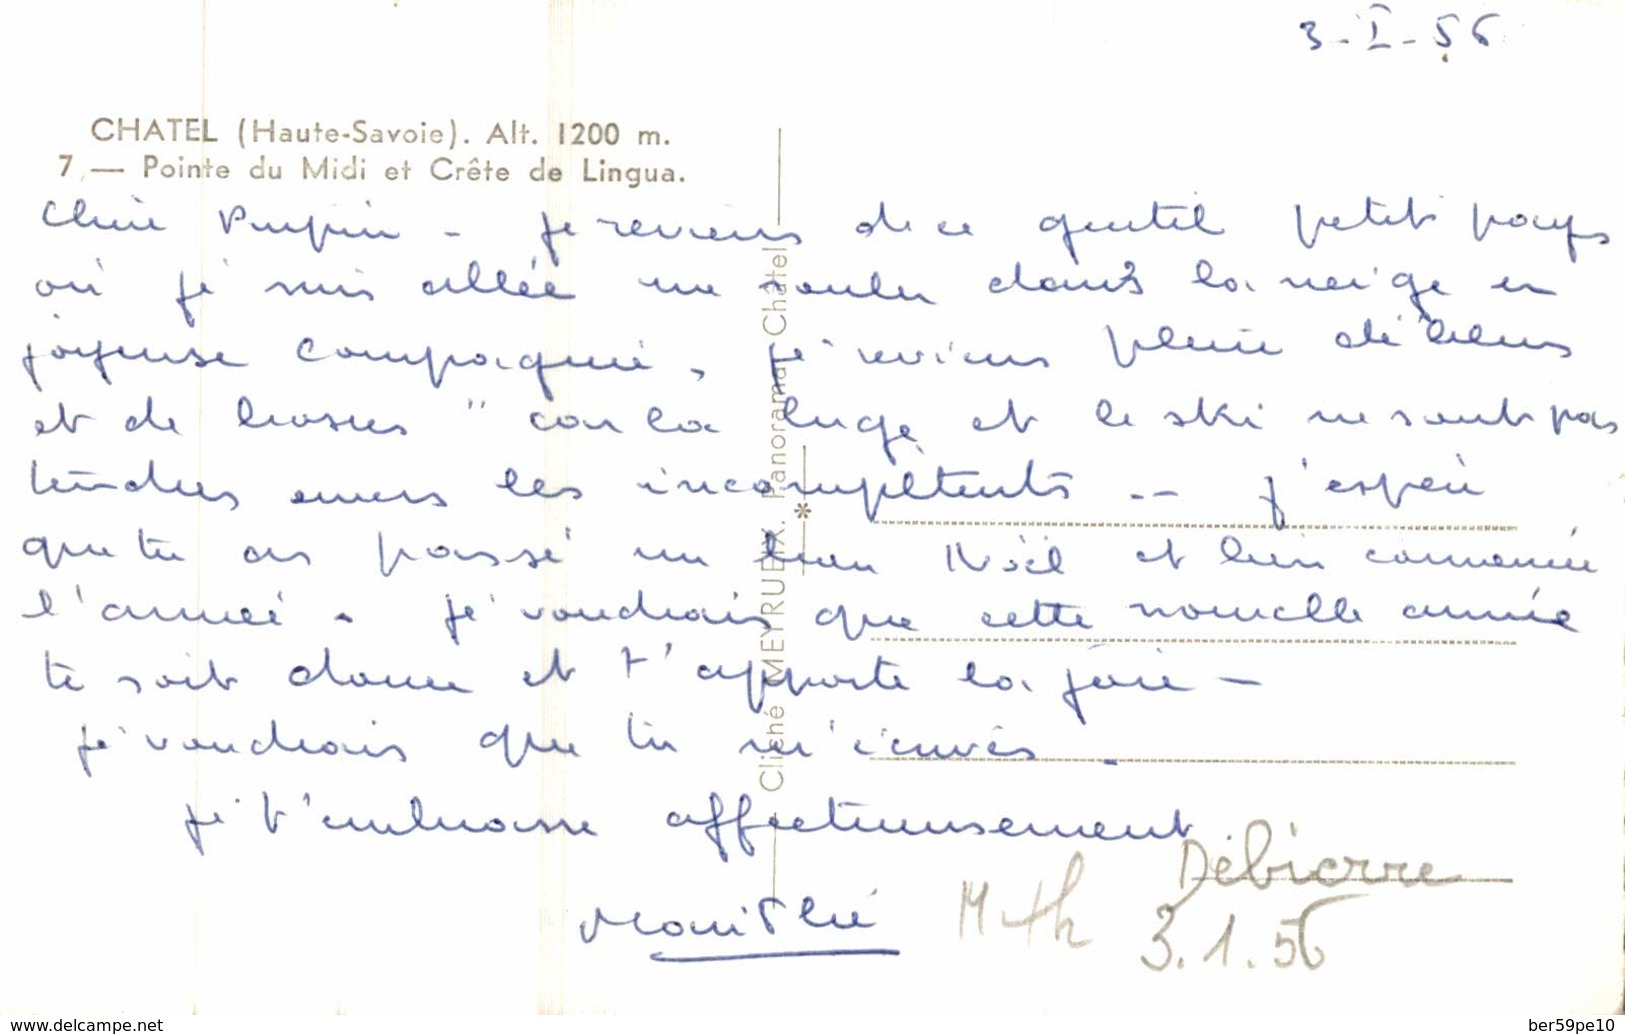 3-I-56
CHATEL (Haute-Savoie). Alt. 1200 m.
7. — Pointe du Midi et Crête de Lingua.
Chère - je reviens de ce gentil petit pays
où je suis allée me rouler dans la neige en
joyeuse compagnie, je reviens pleine de bleus
et de bosses " car la luge et le ski ne sont pas
tendres envers les incompétents -- j'espère
que tu as passé un bon Noël et bien commencé
l'année. je voudrais que cette nouvelle année
te soit douce et t'apporte la joie -
je voudrais que tu m'écrives.
je t'embrasse affectueusement
Cliché MEYRUEIX. Panorama, Châtel
M Th Débierre
3.1.56
www.delcampe.net
ber59pe10